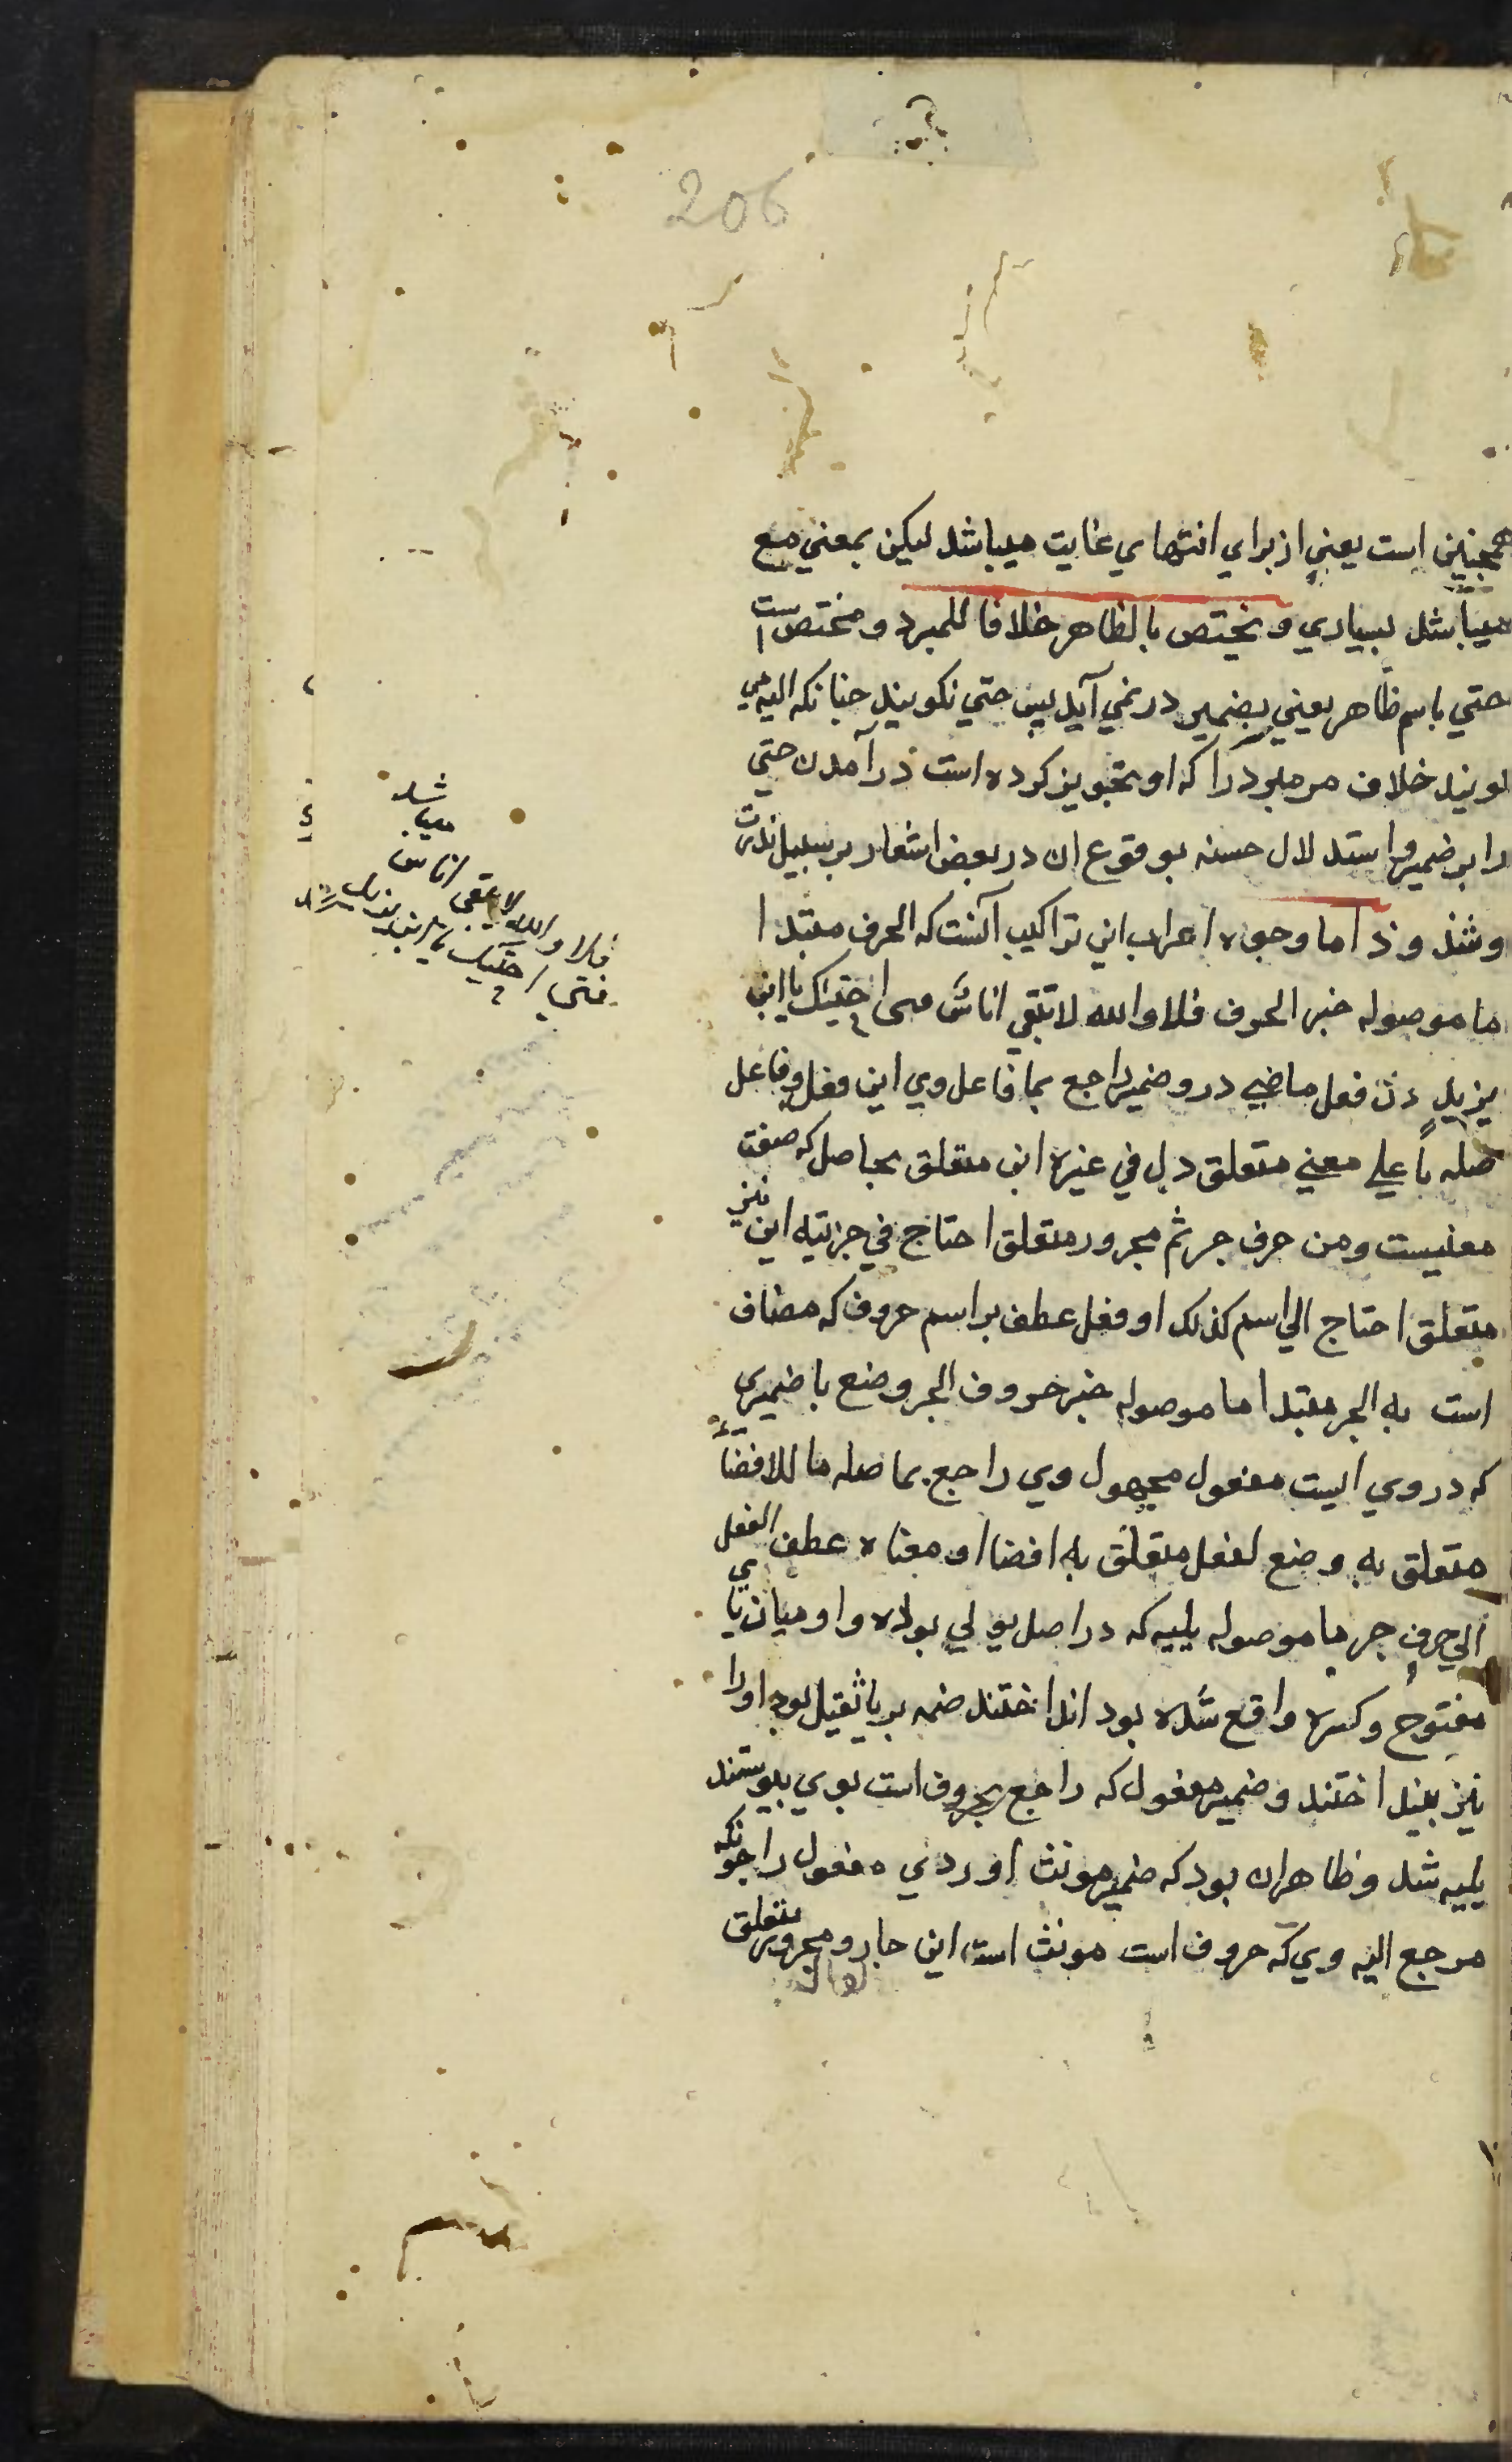 206
همچنین است یعنی از برای انتهای غایت میباشد لیکن بمعنی مع
میباشد بسیاری و یختص بالظاهر خلافا للمبرد و مختص است
حتی باسم ظاهر یعنی بضمیر در نمی آید پس حتی نکویند چنانکه الیه می
کویند خلاف مر مبرد را که او تجویز کرده است درآمدن حتی
را بر ضمیر و استدلال جسته بوقوع ان در بعض اشعار بر سبیل ندرت
و شذوذ اما وجوه اعراب این تراکیب آنست که الحرف مبتدا
ما موصوله خبر الحرف فلا والله لا تبقی اناس حتاک یا ابن
یزید دل فعل ماضی درو ضمیر راجع بما فاعل وی این فعل و فاعل
صله ما علی معنی متعلق دل فی غیره این متعلق بحاصل که صفت
معنیست ومن حرف جر ثم مجرور متعلق احتاج فی جزئیته این نیز
متعلق احتاج الی اسم کذلک او فعل عطف بر اسم حروف که مضاف
است به الجر مبتدا ما موصوله خبر حروف الجر وضع با ضمیری
که در وی است مفعول مجهول وی راجع بما صله ما للافضاء
متعلق به وضع لفعل متعلق به افضا او معناه عطف الفعل
الی حرف جر ما موصوله یلیه که در اصل یولی بوده واو میان یای
مفتوح و کسره واقع شده بود انداختند ضمه بر یا ثقیل بود او را
نیز بینداختند و ضمیر مفعول که راجع بحروف است بوی پیوستند
یلیه شد و ظاهر ان بود که ضمیر مونث اوردی مفعول را چونکه
مرجع الیه وی که حروف است مونث است این جار و مجرور متعلق
شد
میبا
فلا والله لا یبقی اناس
فتی